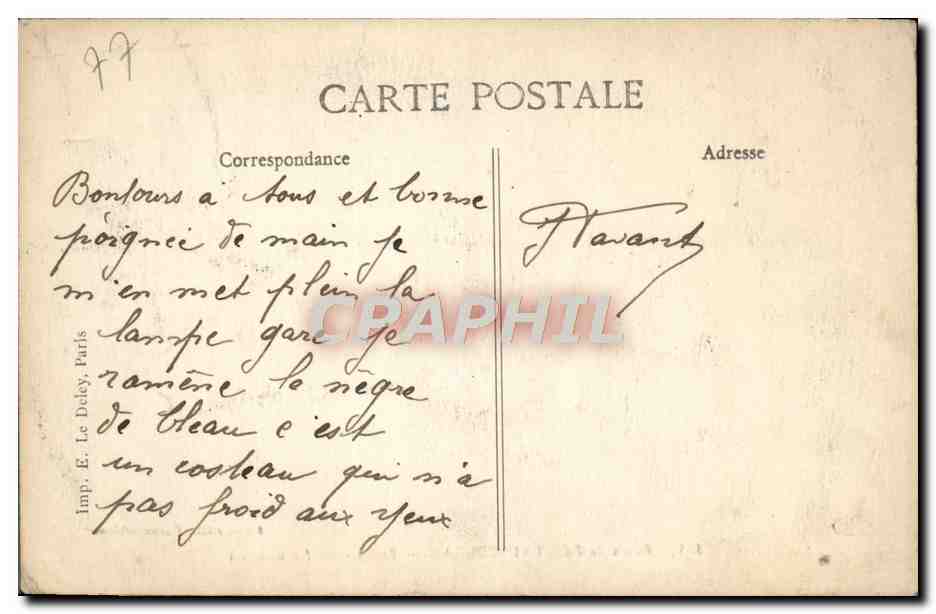 77
CARTE POSTALE
Correspondance
Adresse
Bonjours à tous et bonne
poignée de main je
m'en met plein la
lampe gare je
ramène le nègre
de bleau c'est
un costeau qui n'a
pas froid aux yeux
Imp. E. Le Deley, Paris
CPAPHIL